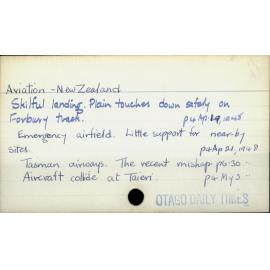 Aviation - New Zealand
Skilful landing. Plain touches down safely on
Forbury track. p4 Ap. 19, 1948
Emergency airfield. Little support for near-by
sites. p4 Ap 21, 1948
Tasman airways. The recent mishap p6. 30 --
Aircraft collide at Taieri. p4 My 3 --
OTAGO DAILY TIMES